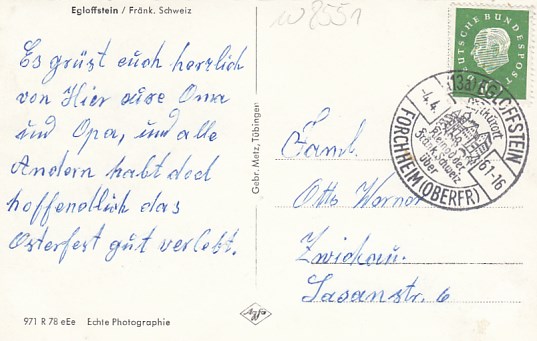 Egloffstein / Fränk. Schweiz
W 8551
Es grüst euch herzlich
von Hier eure Oma
und Opa, und alle
Andern habt doch
hoffendlich das
Osterfest gut verlebt.
971 R 78 eEe Echte Photographie
Gebr. Metz, Tübingen
DEUTSCHE BUNDESPOST
(13a) EGLOFFSTEIN
-4.4. 61-16
Luftkurort
Perle der
Fränk. Schweiz
über
FORCHHEIM (OBERFR)
Faml.
Otto Werner
Zwickau.
Lasanstr. 6